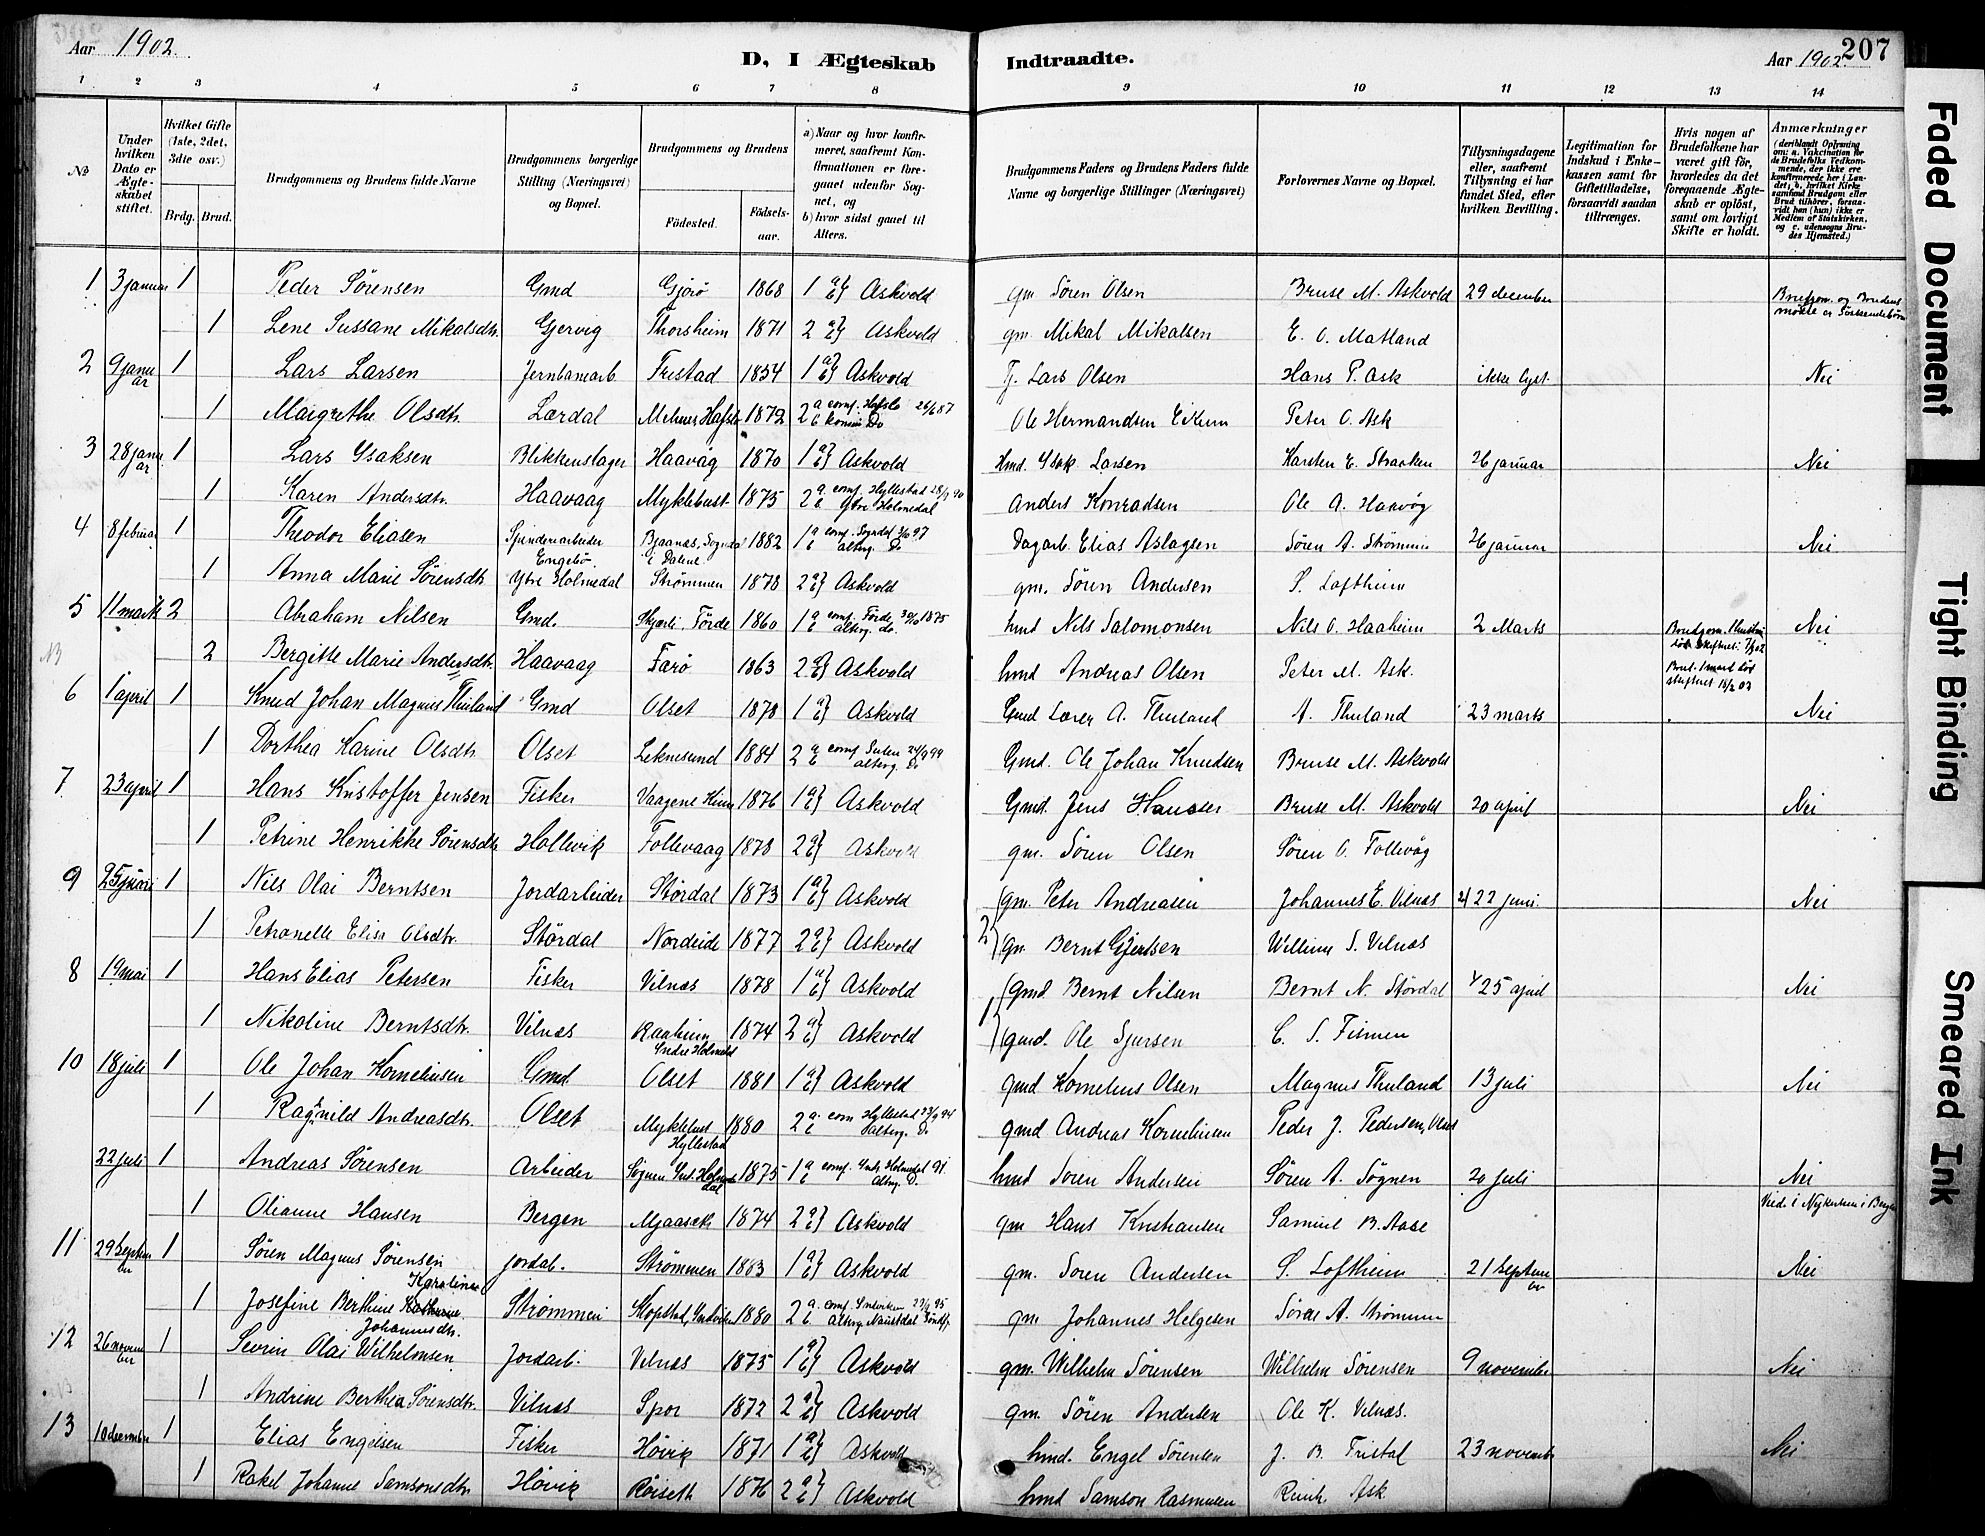 Aar 1902.
D, I Ægteskab Indtraadte.
Aar 1902 207
1 2 3 4 5 6 7 8 9 10 11 12 13 14
No
Under hvilken Dato er Ægteskabet stiftet.
Hvilket Gifte (1ste, 2det, 3dte osv.)
Brdg. Brud.
Brudgommens og Brudens fulde Navne
Brudgommens borgerlige Stilling (Næringsvei) og Bopæl.
Brudgommens og Brudens
Fødested. Fødselsaar.
a) Naar og hvor konfirmeret, saafremt Konfirmationen er foregaaet udenfor Sognet, og
b) hvor sidst gaaet til Alters.
Brudgommens Faders og Brudens Faders fulde Navne og borgerlige Stillinger (Næringsvei)
Forlovernes Navne og Bopæl.
Tillysningsdagene eller, saafremt Tillysning ei har fundet Sted, efter hvilken Bevilling.
Legitimation for Indskud i Enkekassen samt for Giftetilladelse, forsaavidt saadan tiltrænges.
Hvis nogen af Brudefolkene har været gift før, hvorledes da det foregaaende Ægteskab er opløst, samt om lovligt Skifte er holdt.
Anmærkninger (deriblandt Oplysning om: a. Vakcination for de Brudefolks Vedkommende, der ikke ere konfirmerede her i Landet; b. hvilket Kirkesamfund Brudgom eller Brud tilhører, forsaavidt han (hun) ikke er Medlem af Statskirken, og c. udensogns Brudes Hjemsted.)
1 3 januar 1 Peder Sørensen Gmd Gjørø 1868 1 a b} Askvold gm Søren Olsen Bruse M. Askvold 29 december Brudgom. og Brudens
1 Lene Sussane Mikalsdtr. Gjervig Thorsheim 1871 2 a b} Askvold gm. Mikal Mikalsen E. O. Matland
2 9 januar 1 Lars Larsen Jernbanearb. Fristad 1854 1 a b} Askvold Tj. Lars Olsen Hans P. Ask ikke lyst Nei
1 Margrethe Olsdtr. Lærdal Hafslo 1872 2 a comf. Hafslo 26/6 87 b Do Ole Hermandsen Eikum Peter O. Ask
3 28 januar 1 Lars Ysaksen Blikkenslager Haavåg 1870 1 a b} Askvold Hmd. Ysak Larsen Karsten E. 26 januar Nei
1 Karen Andersdtr. Haavaag Myklebust 1875 2 a comf. Hyllestad b Ytre Holmedal Anders Konradsen Ole A. Haavåg
4 8 februar 1 Theodor Eliasen Engebø Sogndal i Dalene 1882 1 a comf. Sogndal 97 b alterg. Do Dagarb. Elias Aslagsen Søren A. Strømmen 26 januar Nei
1 Anna Marie Sørensdtr Ytre Holmedal Strømmen 1878 2 a b} Askvold gm. Søren Andersen S. Loftheim
5 11 marts 2 Abraham Nilsen Gmd. Førde 1860 1 a comf. Førde 1875 b alterg. do. hmd Nils Salomonsen Nils O. Haaheim 2 Marts Nei
NB 2 Bergitte Marie Andersdtr. Haavaag Farø 1863 2 a b} Askvold hmd Andreas Olsen Peter M. Ask.
6 1 april 1 Knud Johan Magnus Thuland Gmd Olset 1878 1 a b} Askvold Gmd Lærer A. Thuland A. Thuland 23 marts Nei
1 Dorthea Karine Olsdtr. Olset Leknesund 1884 2 a comf. Sulen 24/9 99 b alterg. Do Gmd. Ole Johan Knudsen Bruse M. Askvold
7 23 april 1 Hans Kristoffer Jensen Fisker Vaagene Kinn 1876 1 a b} Askvold Gmd. Jens Hansen Bruse M. Askvold 20 april Nei
1 Petrine Henrikke Sørensdtr Hollevik Follevaag 1878 2 a b} Askvold gm. Søren Olsen Søren O. Follevåg
9 25 juni 1 Nils Olai Berntsen Jordarbeider Stordal 1873 1 a b} Askvold gm. Peter Andreasen Johannes E. Vilnæs 22 juni Nei
1 Petronelle Elise Olsdtr. Stordal Nordeide 1877 2 a b} Askvold 2 gm. Bernt Gjertsen Willum S. Vilnæs
8 19 mai 1 Hans Elias Petersen Fisker Vilnæs 1878 1 a b} Askvold gmd Bernt Nilsen Bernt N. Stordal 25 april Nei
1 Nikoline Berntsdtr. Vilnæs Raaheim Indre Holmedal 1874 2 a b} Askvold 1 gmd. Ole Sjursen C. S.
10 18 juli 1 Ole Johan Korneliusen Gmd Olset 1881 1 a b} Askvold gmd Kornelius Olsen Magnus Thuland 13 juli Nei
1 Ragnild Andreasdtr. Olset Myklebust Hyllestad 1880 2 a. com Hyllestad 23/9 94 b alterg. Do gmd Andreas Korneliusen Peder J. Pedersen,
22 juli 1 Andreas Sørensen Arbeider 1875 1 a comf. Indr. Holmedal b alterg. D. hmd Søren Andersen Søren A. Søgnen 20 juli Nei
1 Olianne Hansen Bergen Mjaaseth 1874 2 a b} Askvold gm Hans Kristiansen Samuel B. Aase Vied i Nykirken i Bergen
11 29 september 1 Søren Magnus Sørensen Jordab. Strømmen 1883 1 a b} Askvold gm. Søren Andersen S. Loftheim 21 September Nei
1 Josefine Berthine Karoline Johannesdtr. Strømmen 1880 2 a. comf. Indviken 95 b alterg. Naustdal Søndfj. gm Johannes Helgesen Søren A. Strømmen
12 26 november 1 Severin Olai Wilhelmsen Jordarb. Vilnæs 1875 1 a b} Askvold gm. Wilhelm Sørensen Wilhelm Sørensen 9 november Nei
1 Andrine Berthea Sørensdtr. Vilnæs Spor 1872 2 a b} Askvold gm. Søren Andersen Ole K. Vilnæs.
13 10 december 1 Elias Engelsen Fisker Høivik 1871 1 a b} Askvold hmd. Engel Sørensen J. B. Fristad 23 november Nei
1 Rakel Johanne Samsonsdtr. Høivik Røiseth 1876 2 a b} Askvold hmd Samson Rasmusen Ask
Faded Document
Tight Binding
Smeared Ink